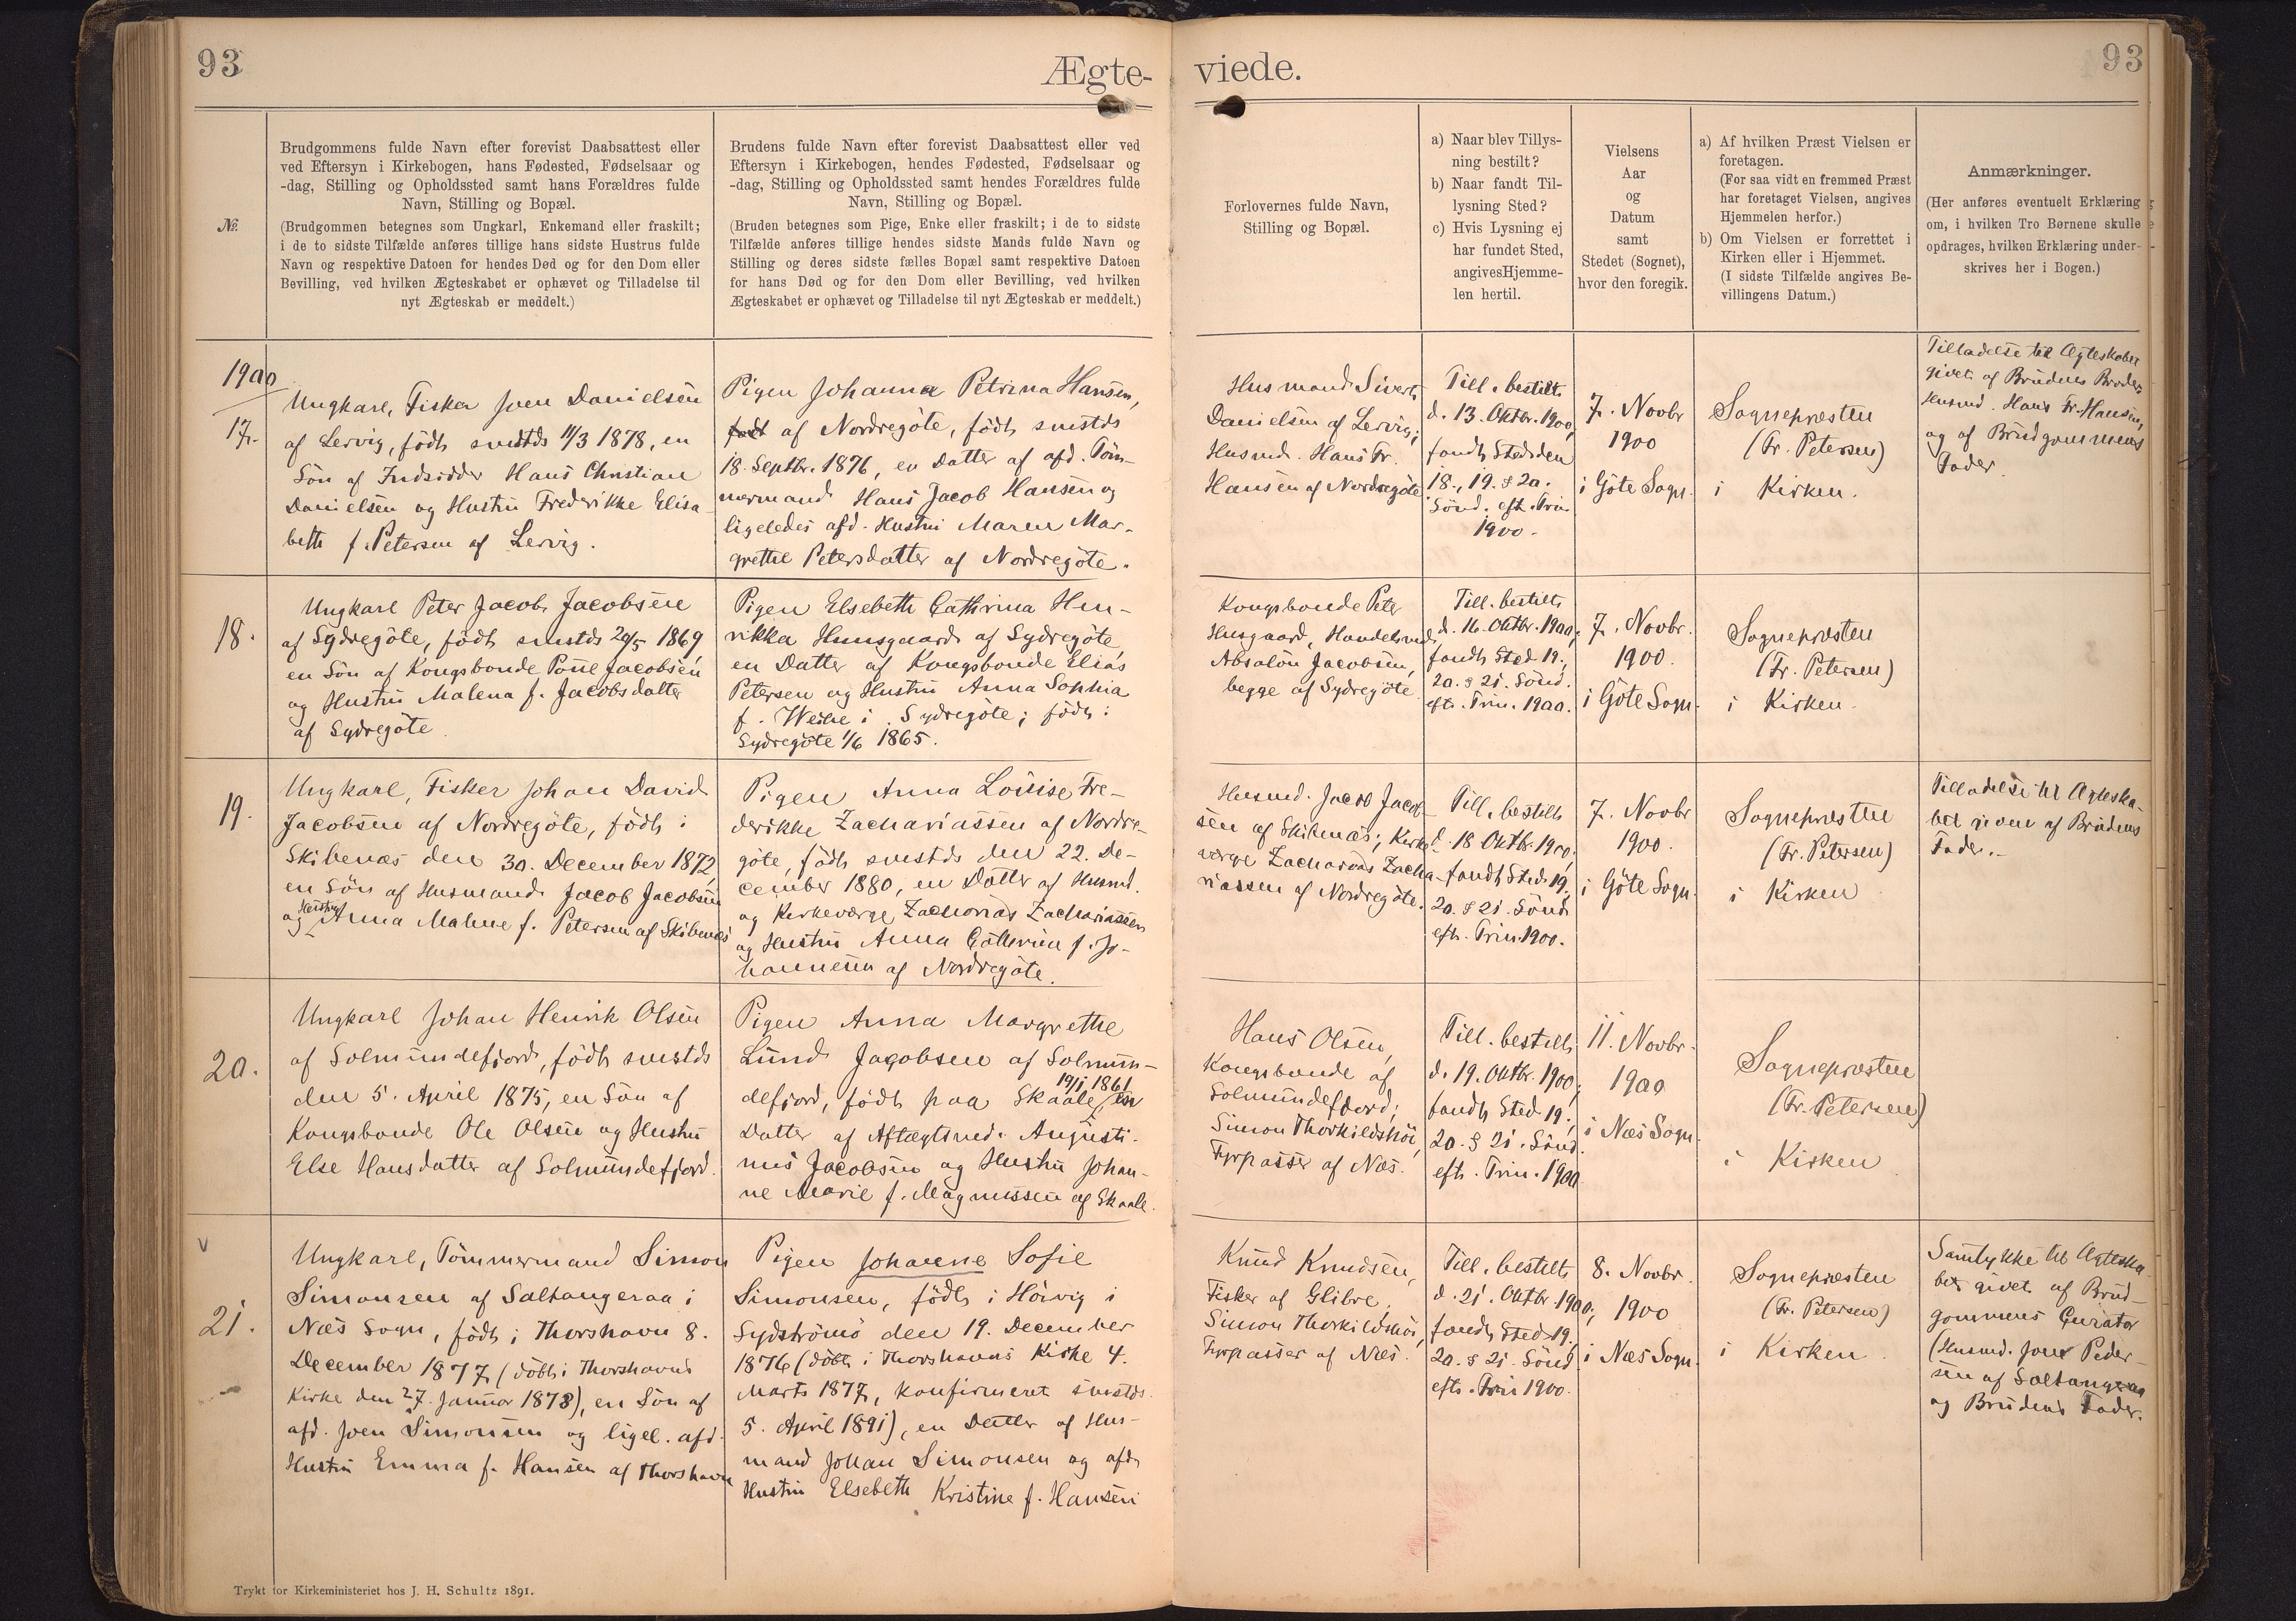 93
Ægte-
viede.
93
№
Brudgommens fulde Navn efter forevist Daabsattest eller
ved Eftersyn i Kirkebogen, hans Fødested, Fødselsaar og
-dag, Stilling og Opholdssted samt hans Forældres fulde
Navn, Stilling og Bopæl.
(Brudgommen betegnes som Ungkarl, Enkemand eller fraskilt;
i de to sidste Tilfælde anføres tillige hans sidste Hustrus fulde
Navn og respektive Datoen for hendes Død og for den Dom eller
Bevilling, ved hvilken Ægteskabet er ophævet og Tilladelse til
nyt Ægteskab er meddelt.)
Brudens fulde Navn efter forevist Daabsattest eller ved
Eftersyn i Kirkebogen, hendes Fødested, Fødselsaar og
-dag, Stilling og Opholdssted samt hendes Forældres fulde
Navn, Stilling og Bopæl.
(Bruden betegnes som Pige, Enke eller fraskilt; i de to sidste
Tilfælde anføres tillige hendes sidste Mands fulde Navn og
Stilling og deres sidste fælles Bopæl samt respektive Datoen
for hans Død og for den Dom eller Bevilling, ved hvilken
Ægteskabet er ophævet og Tilladelse til nyt Ægteskab er meddelt.)
Forlovernes fulde Navn,
Stilling og Bopæl.
a) Naar blev Tillys-
ning bestilt?
b) Naar fandt Til-
lysning Sted?
c) Hvis Lysning ej
har fundet Sted,
angivesHjemme-
len hertil.
Vielsens
Aar
og
Datum
samt
Stedet (Sognet),
hvor den foregik.
a) Af hvilken Præst Vielsen er
foretagen.
(For saa vidt en fremmed Præst
har foretaget Vielsen, angives
Hjemmelen herfor.)
b) Om Vielsen er forrettet i
Kirken eller i Hjemmet.
(I sidste Tilfælde angives Be-
villingens Datum.)
Anmærkninger.
(Her anføres eventuelt Erklæring
om, i hvilken Tro Børnene skulle
opdrages, hvilken Erklæring under-
skrives her i Bogen.)
1900
17.
Ungkarl, Fisker Joen Danielsen
af Lervig, födt smstds 11/3 1878, en
Sön af Indsidder Hans Christian
Danielsen og Hustru Frederikke Elisa-
beth f. Petersen af Lervig.
Pigen Johanna Petrina Hansen,
födt af Nordregöte, födt smstds
18. Septbr. 1876, en Datter af afd. Töm-
mermand Hans Jacob Hansen og
ligeledes afd. Hustru Maren Mar-
grethe Petersdatter af Nordregöte.
Husmand Sivert
Danielsen af Lervig;
Husmd. Hans Fr.
Hansen af Nordregöte
Till. bestilt
d. 13. Oktbr. 1900,
fandt Sted den
18., 19. & 20.
Sönd. eft. Trin.
1900.
7. Novbr
1900
i Göte Sogn.
Sognepræsten
(Fr. Petersen)
i Kirken.
Tilladelse til Ægteskabet
givet af Brudens Broder
Husmd. Hans Fr. Hansen,
og af Brudgommens
Fader.
18.
Ungkarl Peter Jacob Jacobsen
af Sydregöte, födt smstds 20/5 1869,
en Sön af Kongsbonde Poul Jacobsen
og Hustru Malena f. Jacobsdatter
af Sydregöte.
Pigen Elsebeth Cathrina Hen-
rikka Husgaard af Sydregöte,
en Datter af Kongsbonde Elias
Petersen og Hustru Anna Sophia
f. Weihe i Sydregöte; födt i
Sydregöte 1/6 1865.
Kongsbonde Peter
Husgaard, Handelsmd.
Absalon Jacobsen,
begge af Sydregöte
Till. bestilt
d. 16. Oktbr. 1900;
fandt Sted 19.,
20. & 21. Sönd.
eft. Trin. 1900.
7. Novbr.
1900.
i Göte Sogn.
Sognepræsten
(Fr. Petersen)
i Kirken.
19.
Ungkarl, Fisker Johan David
Jacobsen af Nordregöte, födt i
Skibenæs den 30. December 1872,
en Sön af Husmand Jacob Jacobsen
og Hustru Anna Malene f. Petersen af Skibenæs
Pigen Anna Louise Fre-
derikke Zachariassen af Nordre-
göte, födt smstds den 22. De-
cember 1880, en Datter af Husmd.
og Kirkeværge Zacharias Zachariassen
og Hustru Anna Cathrina f. Jo-
hannesen af Nordregöte.
Husmd. Jacob Jacob-
sen af Skibenæs; Kirke-
værge Zacharias Zacha-
riassen af Nordregöte.
Till. bestilt
d. 18 Oktbr. 1900,
fandt Sted 19.
20. & 21. Sönd.
eft. Trin. 1900.
7. Novbr
1900.
i Göte Sogn.
Sognepræsten
(Fr. Petersen)
i Kirken
Tilladelse til Ægteska-
bet given af Brudens
Fader.-
20.
Ungkarl Johan Henrik Olsen
af Solmundefjord, födt smstds
den 5. April 1875, en Sön af
Kongsbonde Ole Olsen og Hustru
Else Hansdatter af Solmundefjord.
Pigen Anna Margrethe
Lund Jacobsen af Solmun-
defjord, födt paa Skaale 19/1 1861, en
Datter af Aftægtsmd. Augusti-
nus Jacobsen og Hustru Johan-
ne Marie f. Magnussen af Skaale.
Hans Olsen,
Kongsbonde af
Solmundefjord;
Simon Thorkildshöi,
Fyrpasser af Næs.
Till. bestilt
d. 19. Oktbr. 1900;
fandt Sted 19.,
20. & 21. Sönd.
eft. Trin. 1900
11. Novbr.
1900
i Næs Sogn.
Sognepræsten
(Fr. Petersen)
i Kirken
21.
Ungkarl, Tömmermand Simon
Simonsen af Saltangeraa i
Næs Sogn, födt i Thorshavn 8.
December 1877 (döbt i Thorshavns
Kirke den 27. Januar 1878), en Sön af
afd. Joen Simonsen og ligel. afd.
Hustru Emma f. Hansen af Thorshavn
Pigen Johanne Sofie
Simonsen, födt i Hörvig i
Sydströmö den 19. December
1876 (döbt i Thorshavns Kirke 4.
Marts 1877, konfirmeret smstds.
5. April 1891), en Datter af Hus-
mand Johan Simonsen og afd.
Hustru Elsebeth Kristine f. Hansen
Knud Knudsen,
Fisker af Glibre,
Simon Thorkildshöi,
Fyrpasser af Næs.
Till. bestilt
d. 21. Oktbr. 1900;
fandt Sted 19.,
20. & 21. Sönd
eft. Trin 1900.
8. Novbr.
1900
i Næs Sogn.
Sognepræsten
(Fr. Petersen)
i Kirken
Samtykke til Ægteska-
bet givet af Brud-
gommens Curator
(Husmd. Joen Peder-
sen af Saltangeraa
og Brudens Fader.
Trykt for Kirkeministeriet hos J. H. Schultz 1891.